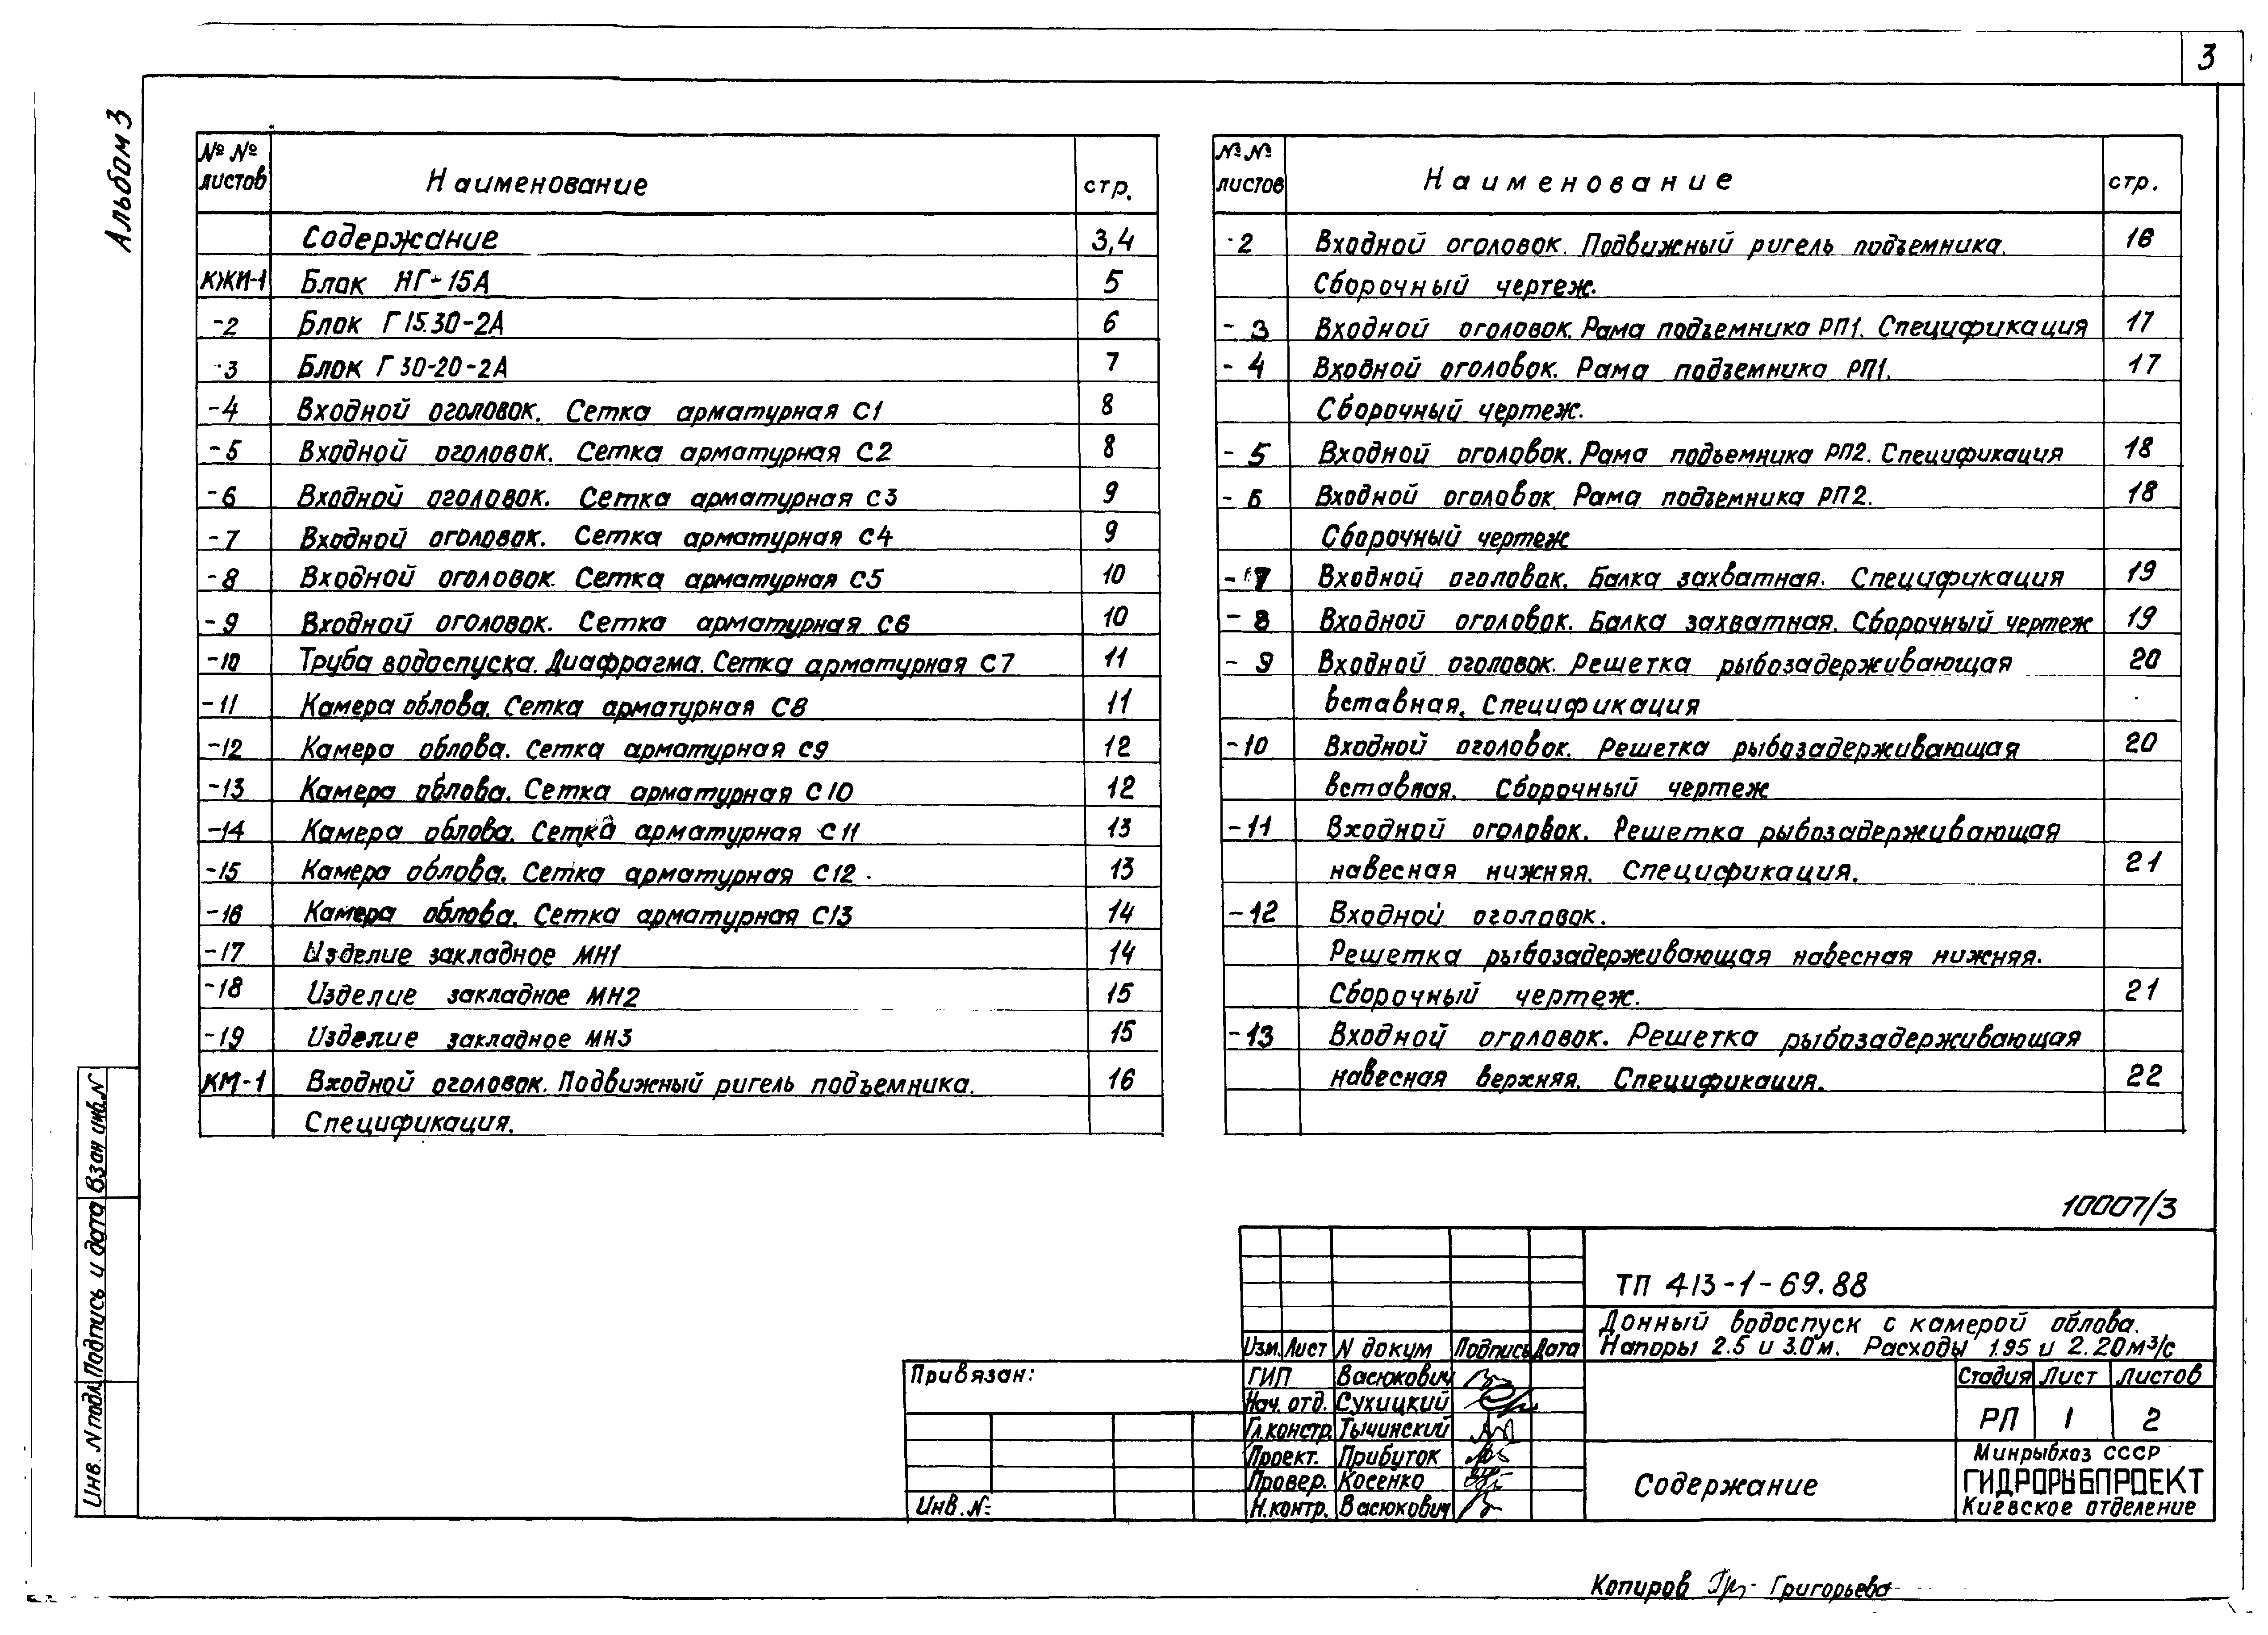 3
Альбом 3
№ № листов Наименование стр.
Содержание 3,4
КЖИ-1 Блок НГ-15А 5
-2 Блок Г15.30-2А 6
-3 Блок Г 30-20-2А 7
-4 Входной оголовок. Сетка арматурная С1 8
-5 Входной оголовок. Сетка арматурная С2 8
-6 Входной оголовок. Сетка арматурная С3 9
-7 Входной оголовок. Сетка арматурная С4 9
-8 Входной оголовок. Сетка арматурная С5 10
-9 Входной оголовок. Сетка арматурная С6 10
-10 Труба водоспуска. Диафрагма. Сетка арматурная С7 11
-11 Камера облова. Сетка арматурная С8 11
-12 Камера облова. Сетка арматурная С9 12
-13 Камера облова. Сетка арматурная С10 12
-14 Камера облова. Сетка арматурная С11 13
-15 Камера облова. Сетка арматурная С12 13
-16 Камера облова. Сетка арматурная С13 14
-17 Изделие закладное МН1 14
-18 Изделие закладное МН2 15
-19 Изделие закладное МН3 15
КМ-1 Входной оголовок. Подвижный ригель подъемника. 16
Спецификация.
№ № листов Наименование стр.
-2 Входной оголовок. Подвижный ригель подъемника. 16
Сборочный чертеж.
-3 Входной оголовок. Рама подъемника РП1. Спецификация 17
-4 Входной оголовок. Рама подъемника РП1. 17
Сборочный чертеж.
-5 Входной оголовок. Рама подъемника РП2. Спецификация 18
-6 Входной оголовок. Рама подъемника РП2. 18
Сборочный чертеж
-7 Входной оголовок. Балка захватная. Спецификация 19
-8 Входной оголовок. Балка захватная. Сборочный чертеж 19
-9 Входной оголовок. Решетка рыбозадерживающая 20
вставная. Спецификация
-10 Входной оголовок. Решетка рыбозадерживающая 20
вставная. Сборочный чертеж
-11 Входной оголовок. Решетка рыбозадерживающая
навесная нижняя. Спецификация. 21
-12 Входной оголовок.
Решетка рыбозадерживающая навесная нижняя.
Сборочный чертеж. 21
-13 Входной оголовок. Решетка рыбозадерживающая
навесная верхняя. Спецификация. 22
10007/3
ТП 413-1-69.88
Донный водоспуск с камерой облова.
Напоры 2.5 и 3.0м. Расходы 1.95 и 2.20м³/с
Изм. Лист N докум Подпись Дата
Привязан:
ГИП Васюкович
Нач. отд. Сухицкий
Гл. констр. Тычинский
Проект. Прибуток
Провер. Косенко
Н. контр. Васюкович
Инв. №
Содержание
Стадия Лист Листов
РП 1 2
Минрыбхоз СССР
ГИДРОРЫБПРОЕКТ
Киевское отделение
Инв. N подл. Подпись и дата Взан инв. N
Копиров Григорьева